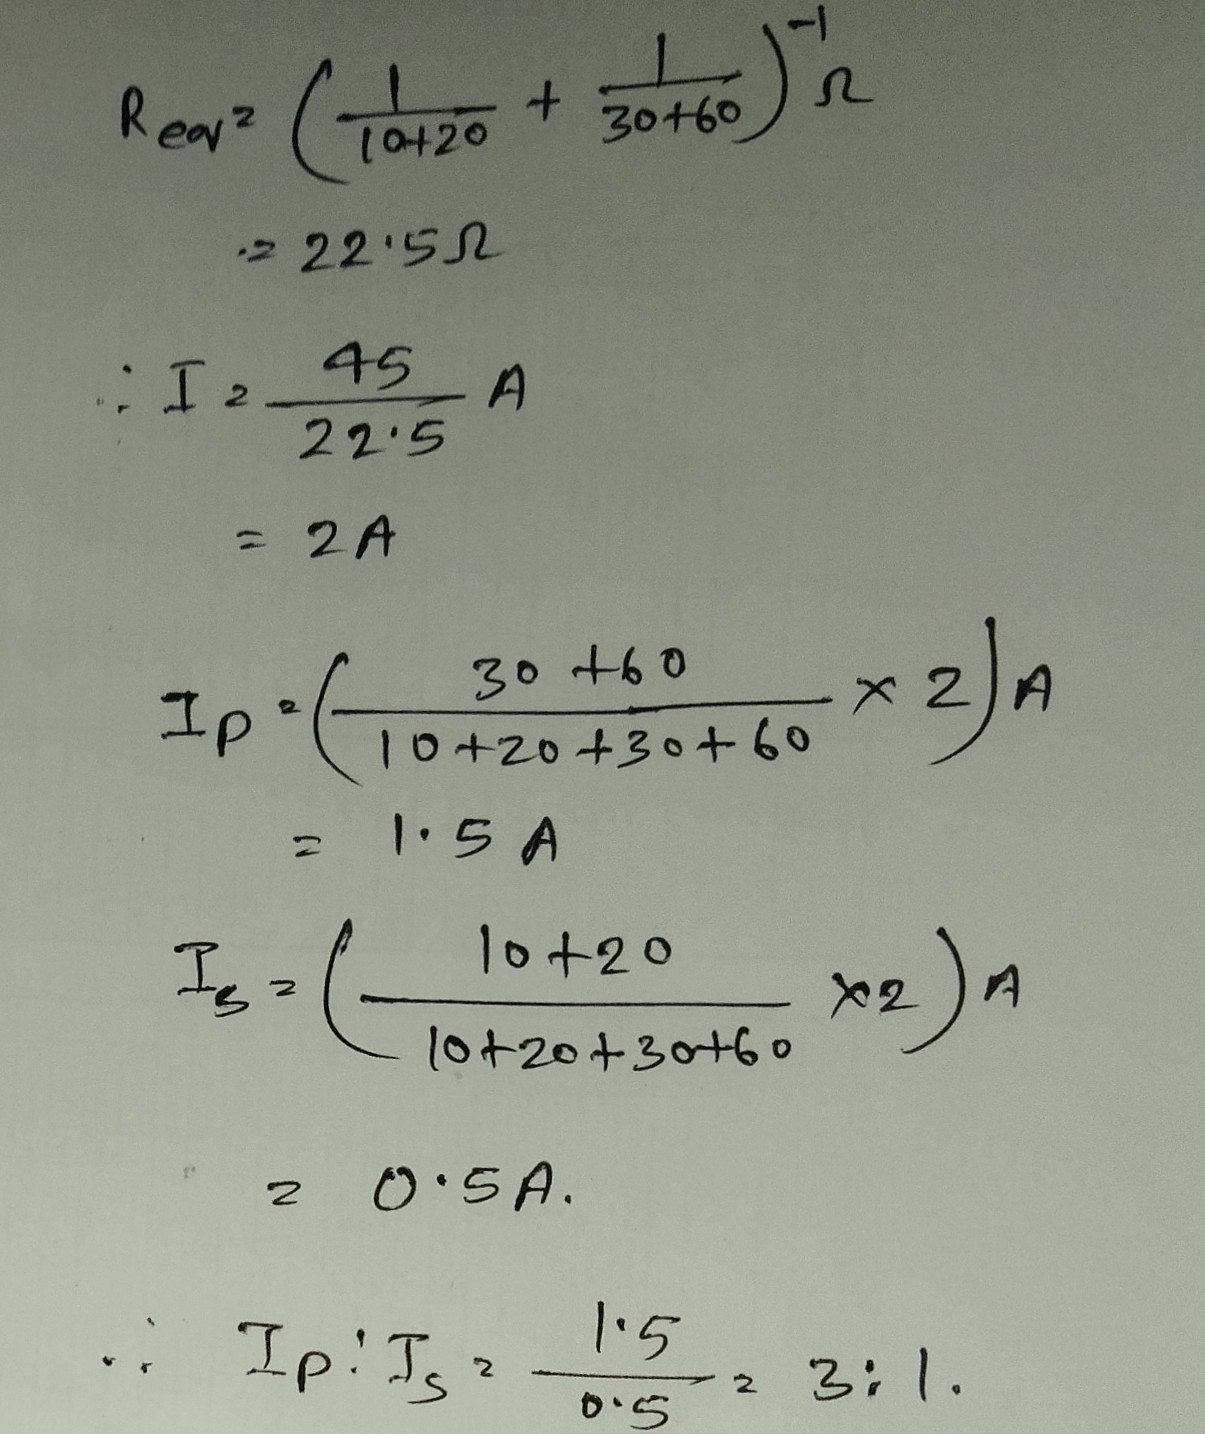 Reqv = (1/(10+20) + 1/(30+60))⁻¹ Ω
= 22.5Ω
∴ I = 45/22.5 A
= 2A
Ip = ((30+60)/(10+20+30+60) × 2) A
= 1.5 A
Is = ((10+20)/(10+20+30+60) ×2) A
= 0.5A.
∴ Ip : Is = 1.5/0.5 = 3:1.